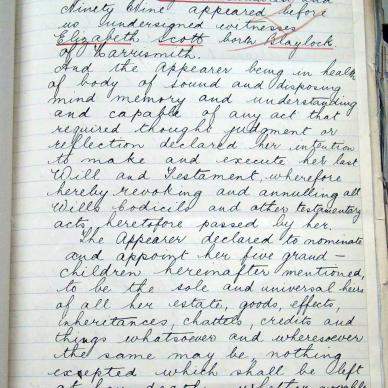 and
Ninety Nine appeared before
us undersigned witnesses
Elizabeth Scott born Blaylock
of Harrismith.
And the Appearer being in health
of body of sound and disposing
mind memory and understanding
and capable of any act that
required thought judgment or
reflection declared her intention
to make and execute her last
Will and Testament, wherefore
hereby revoking and annulling all
Wills Codicils and other testamentary
acts heretofore passed by her.
The Appearer declared to nominate
and appoint her five grand-
children hereinafter mentioned,
to be the sole and universal heirs
of all her estate, goods, effects,
inheritances, chattels, credits and
things whatsoever and wheresoever
the same may be, nothing
excepted which shall be left
at her death, whether movable